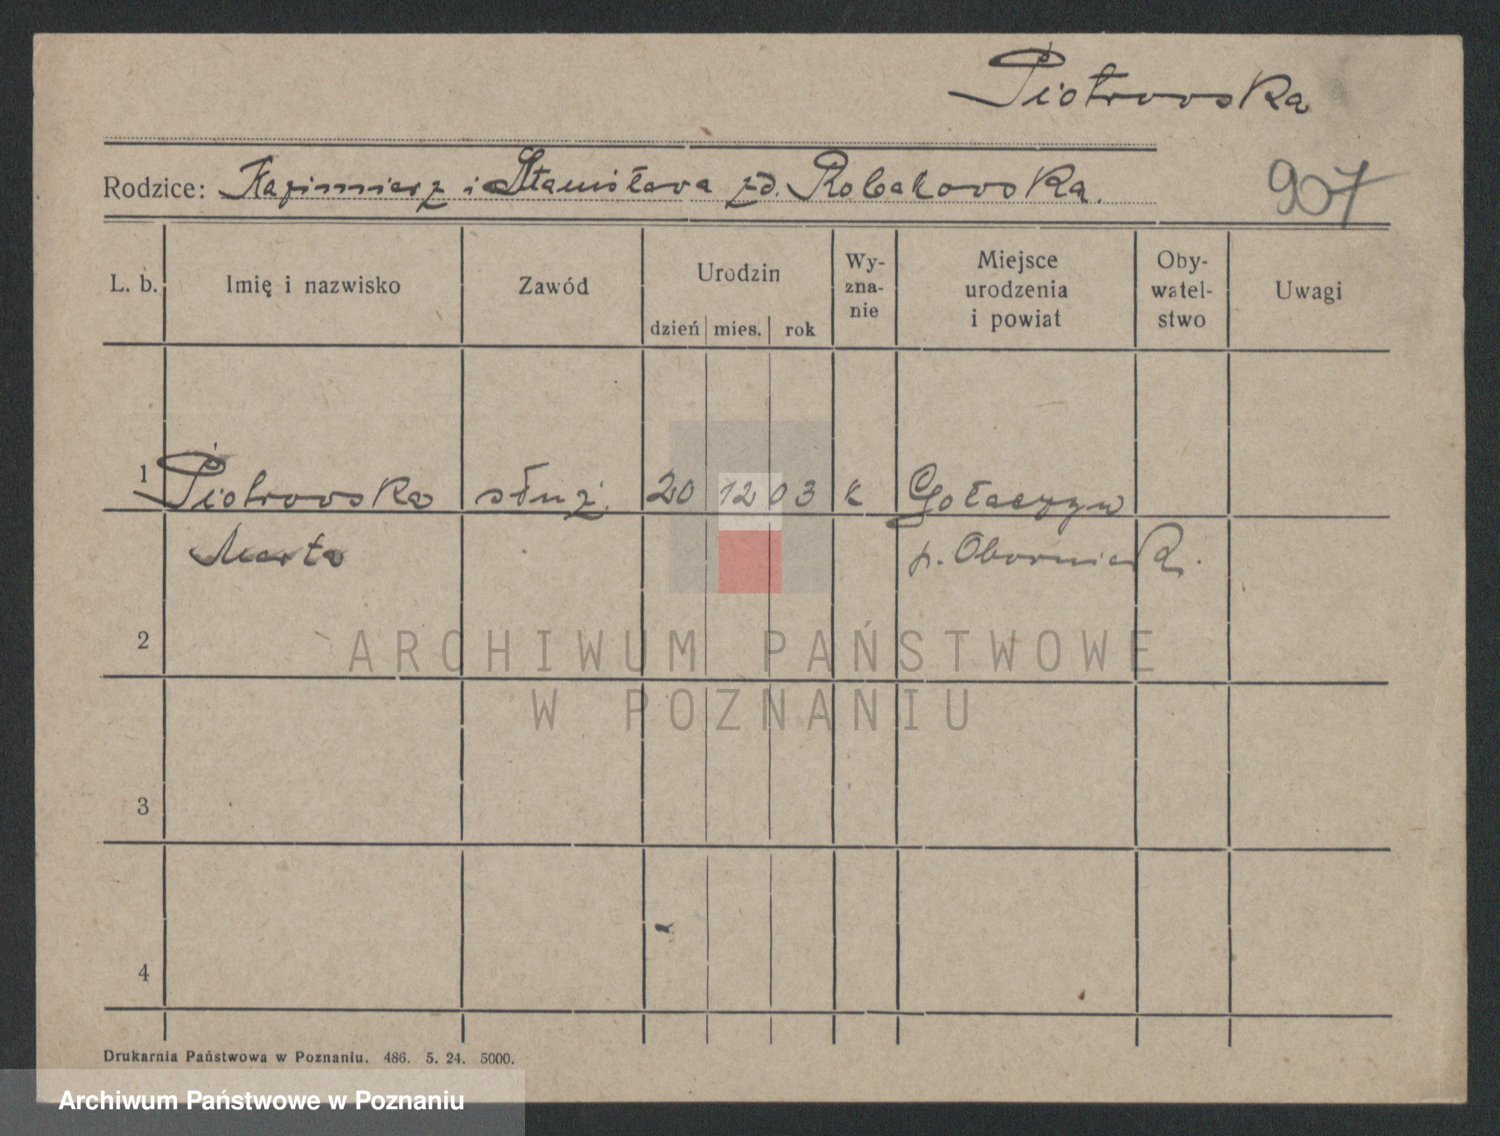 Piotrowska
Rodzice: Kazimierz i Stanisława zd. Robakowska.
907
L. b. Imię i nazwisko Zawód Urodzin dzień mies. rok Wy-zna-nie Miejsce urodzenia i powiat Oby-watel-stwo Uwagi
1 Piotrowska służ. 20 12 03 k Gołaszyn
Marta p. Obornik.
2
ARCHIWUM PAŃSTWOWE
W POZNANIU
3
4
Drukarnia Państwowa w Poznaniu. 486. 5. 24. 5000.
Archiwum Państwowe w Poznaniu